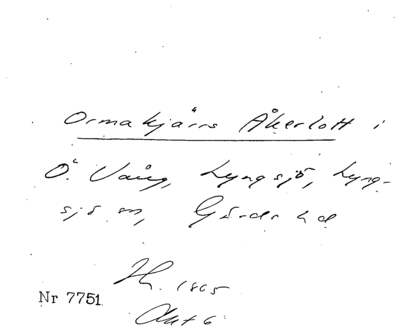 Ormakjärrs Åkerlott i
Ö. Vång, Lyngsjö, Lyng-
sjö sn, Gärds hd
Hh. 1865
Nr 7751
Akt 6